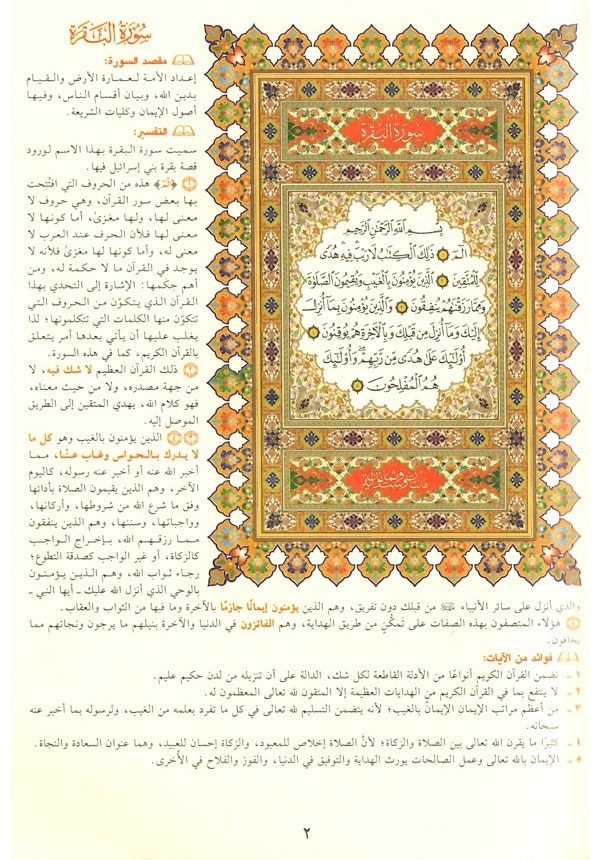 سُورَةُ البَقَرَة
مقصد السورة:
إعداد الأمة لعمارة الأرض والقيام
بدين الله، وبيان أقسام الناس، وفيها
أصول الإيمان وكليات الشريعة.
التفسير:
سميت سورة البقرة بهذا الاسم لورود
قصة بقرة بني إسرائيل فيها.
١ ﴿الٓمٓ﴾ هذه من الحروف التي افتُتحت
بها بعض سور القرآن، وهي حروف لا
معنى لها، ولها مغزىً، أما كونها لا
معنى لها فلأن الحرف عند العرب لا
معنى له، وأما كونها لها مغزىً فلأنه لا
يوجد في القرآن ما لا حكمة له، ومن
أهم حِكمها: الإشارة إلى التحدي بهذا
القرآن الذي يتكوَّن من الحروف التي
تتكوَّن منها الكلمات التي تتكلمونها؛ لذا
يغلب عليها أن يأتي بعدها أمر يتعلق
بالقرآن الكريم، كما في هذه السورة.
٢ ذلك القرآن العظيم لا شك فيه، لا
من جهة مصدره، ولا من حيث معناه،
فهو كلام الله، يهدي المتقين إلى الطريق
الموصل إليه.
٣ ٤ الذين يؤمنون بالغيب وهو كل ما
لا يدرك بالحواس وغاب عنا، مما
أخبر الله عنه أو أخبر عنه رسوله، كاليوم
الآخر، وهم الذين يقيمون الصلاة بأدائها
وفق ما شرع الله من شروطها، وأركانها،
وواجباتها، وسننها، وهم الذين ينفقون
مما رزقهم الله، بإخراج الواجب
كالزكاة، أو غير الواجب كصدقة التطوع؛
رجاء ثواب الله، وهم الذين يؤمنون
بالوحي الذي أنزل الله عليك ـ أيها النبي ـ
والذي أنزل على سائر الأنبياء ﷺ من قبلك دون تفريق، وهم الذين يؤمنون إيمانًا جازمًا بالآخرة وما فيها من الثواب والعقاب.
٥ هؤلاء المتصفون بهذه الصفات على تَمكُّنٍ من طريق الهداية، وهم الفائزون في الدنيا والآخرة بنيلهم ما يرجون ونجاتهم مما
يخافون.
سُورَةُ البَقَرَة
بِسْمِ اللَّهِ الرَّحْمَٰنِ الرَّحِيمِ
الٓمٓ ١ ذَٰلِكَ ٱلْكِتَٰبُ لَا رَيْبَ فِيهِ هُدًى
لِّلْمُتَّقِينَ ٢ ٱلَّذِينَ يُؤْمِنُونَ بِٱلْغَيْبِ وَيُقِيمُونَ ٱلصَّلَوٰةَ
وَمِمَّا رَزَقْنَٰهُمْ يُنفِقُونَ ٣ وَٱلَّذِينَ يُؤْمِنُونَ بِمَآ أُنزِلَ
إِلَيْكَ وَمَآ أُنزِلَ مِن قَبْلِكَ وَبِٱلْآخِرَةِ هُمْ يُوقِنُونَ ٤
أُوْلَٰٓئِكَ عَلَىٰ هُدًى مِّن رَّبِّهِمْ وَأُوْلَٰٓئِكَ
هُمُ ٱلْمُفْلِحُونَ ٥
فوائد من الآيات:
١ ـ تضمن القرآن الكريم أنواعًا من الأدلة القاطعة لكل شك، الدالة على أن تنزيله من لدن حكيم عليم.
٢ ـ لا ينتفع بما في القرآن الكريم من الهدايات العظيمة إلا المتقون لله تعالى المعظمون له.
٣ ـ من أعظم مراتب الإيمان الإيمانُ بالغيب؛ لأنه يتضمن التسليم لله تعالى في كل ما تفرد بعلمه من الغيب، ولرسوله بما أخبر عنه
سبحانه.
٤ ـ كثيرًا ما يقرن الله تعالى بين الصلاة والزكاة؛ لأنَّ الصلاة إخلاص للمعبود، والزكاة إحسان للعبيد، وهما عنوان السعادة والنجاة.
٥ ـ الإيمان بالله تعالى وعمل الصالحات يورث الهداية والتوفيق في الدنيا، والفوز والفلاح في الأُخرى.
٢